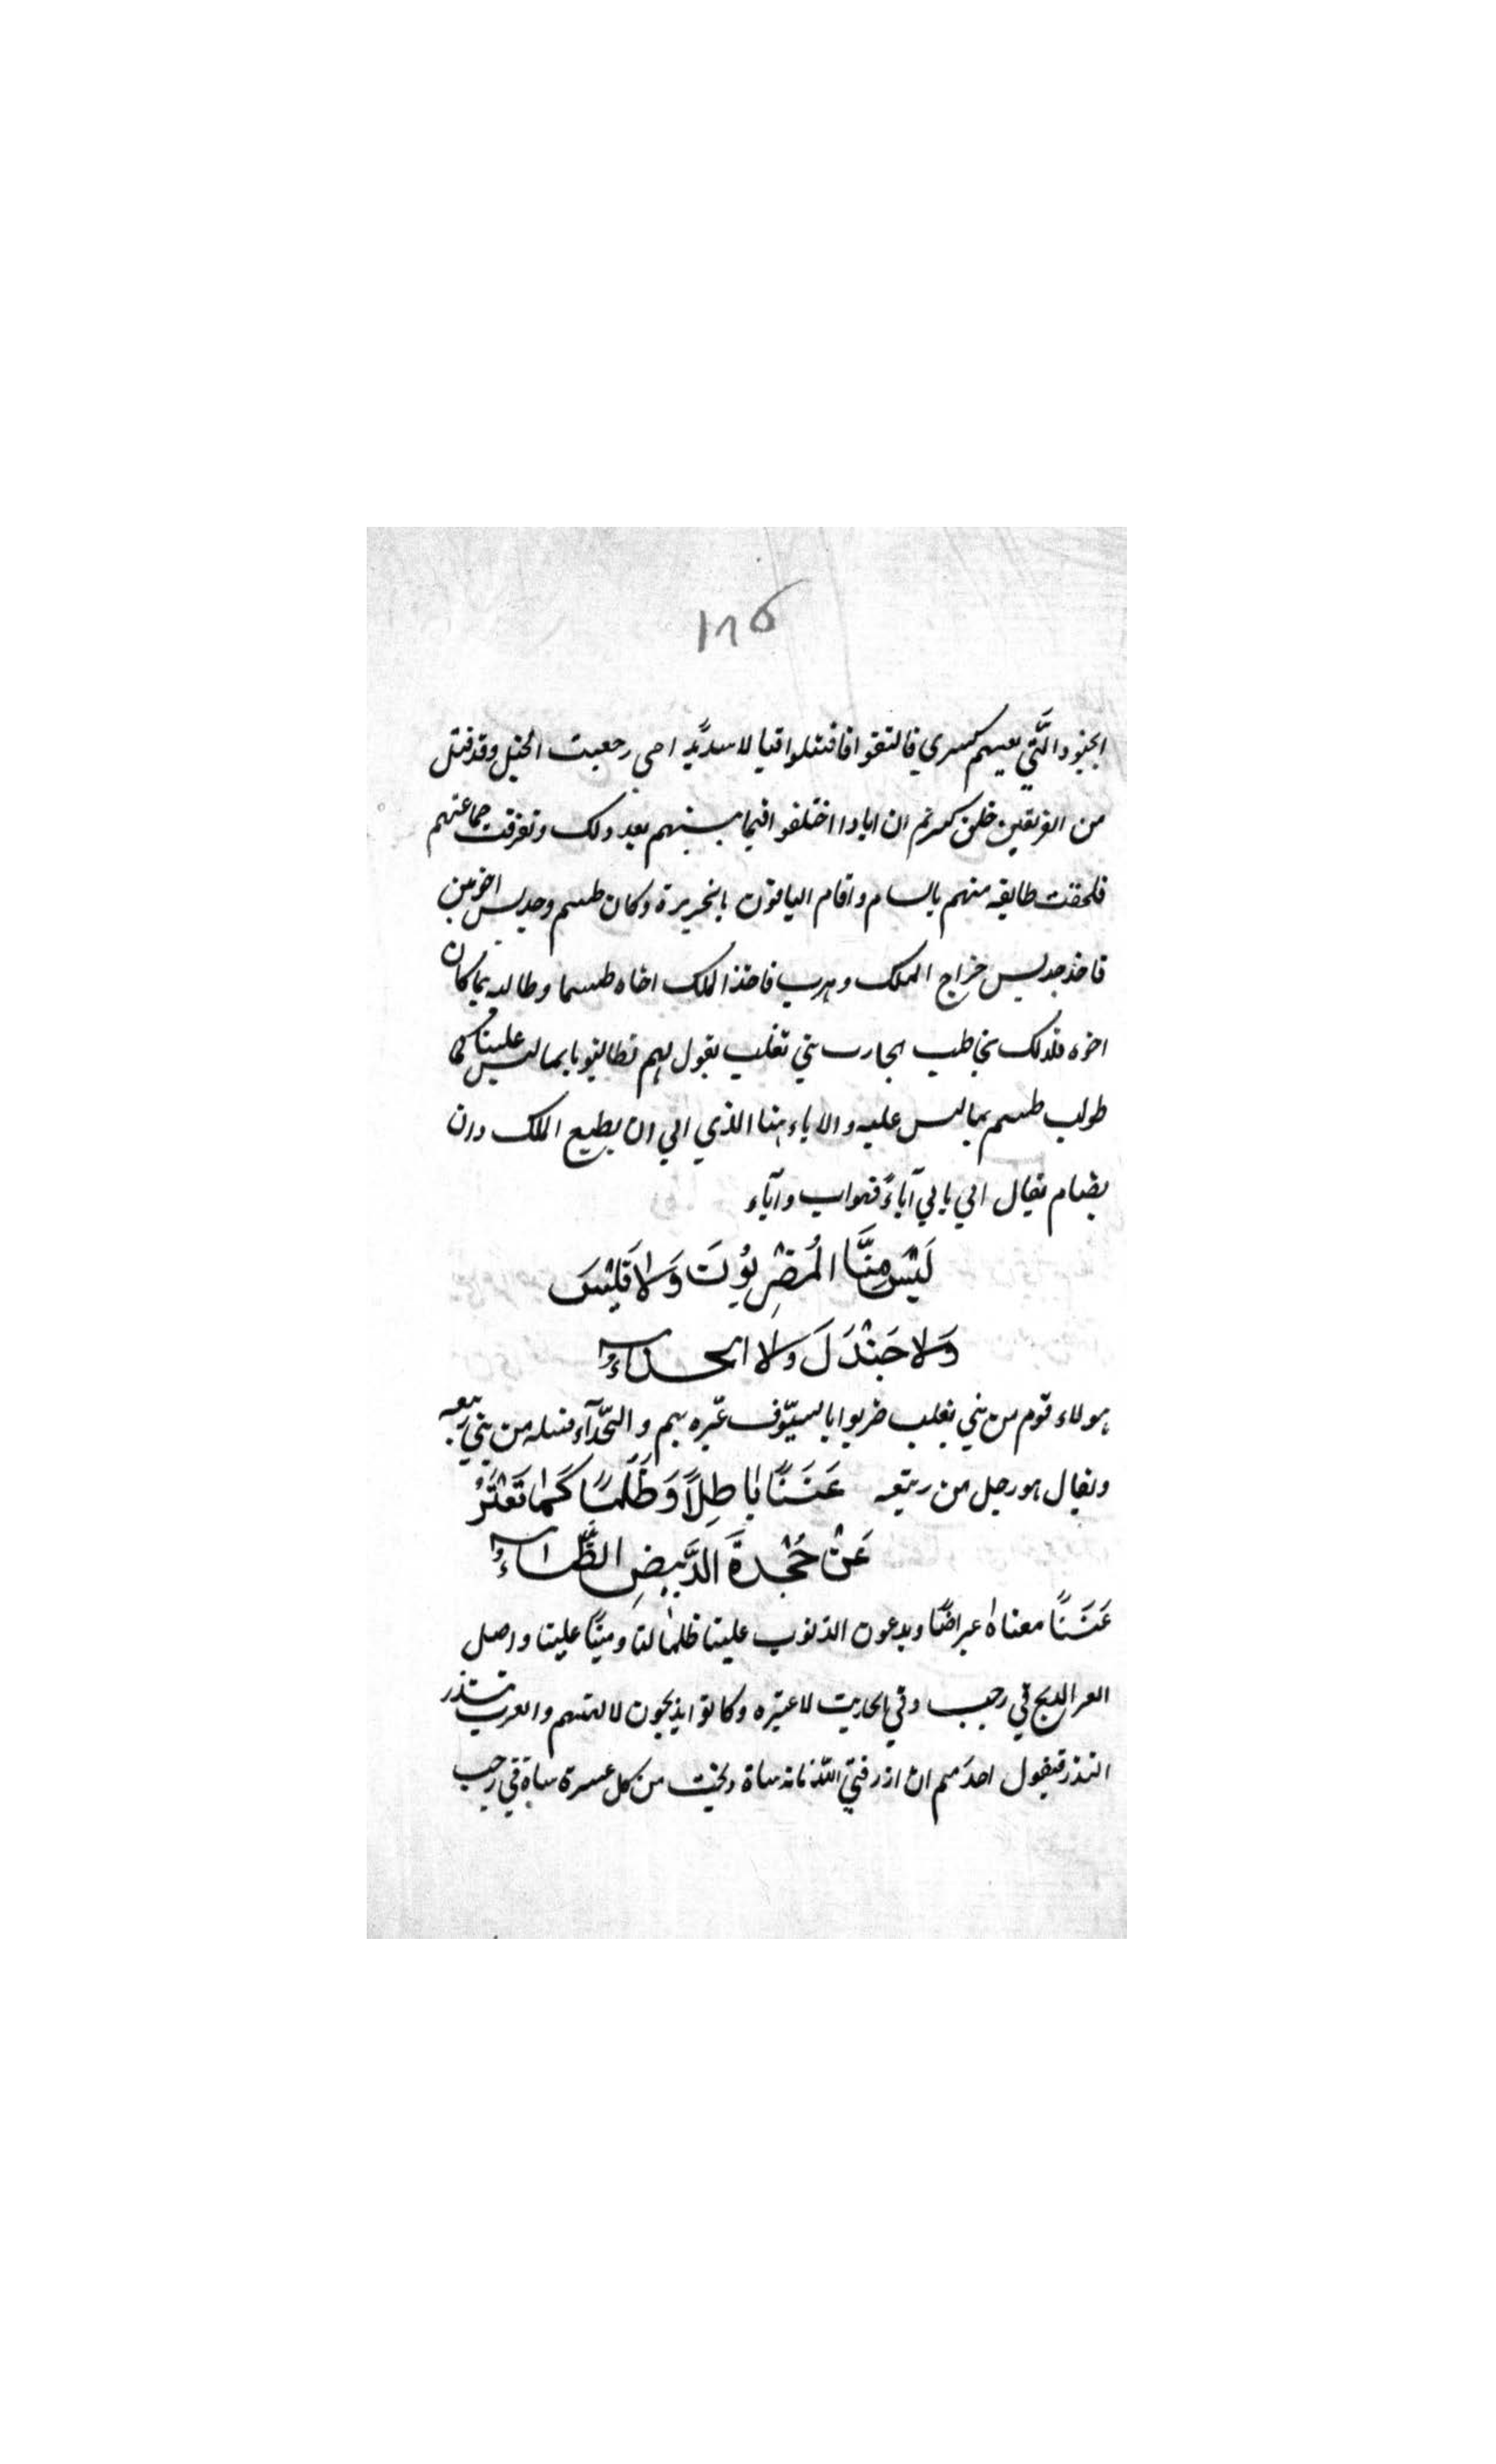 ١٨٥
الجنود التّي بعيهم كسري فالتقوا فاقتتلوا قتالا شديدا حتى رجعت الخيل وقد قتل
من الفريقين خلق كثير ثم ان ايادا اختلفوا فيما بينهم بعد ذلك وتفرقت جماعتهم
فلحقت طايفه منهم بالشام واقام الباقون بالجزيرة وكان طسم وجديس اخوين
فاخذ جديس خراج الملك وهرب فاخذ الملك اخاه طسما وطالبه بما كان
اخوه فلذلك يخاطب الحارث بني تغلب يقول لهم تطالبونا بما ليس علينا كما
طولب طسم بما ليس عليه والاباء هنا الذي ابي ان يطيع الملك وان
يضام يقال ابي يابي آباءً فهو اب وآباء
لَيْسَ مِنَّا الْمُضَرِبُونَ وَلَا قَيْسَ
وَلا جَنْدَلَ وَلا الحداءُ
هولاء قوم من بني تغلب ضربوا بالسيّوف عيّره بهم والحّدآء قبيله من بني ربيعه
ويقال هو رجل من ربيعه عَنَنًا بَاطِلًا وَظُلْمًا كَمَا تُعْتَرُ
عَنْ حُجْرَةِ الرَّبِيضِ الظِّباءُ
عَنَنًا معناه اعتراضًا ويدعون الذنوب علينا ظلما لنا وميلًا علينا واصل
العتر الذبح في رجب وفي الحديث لا عتيره وكانوا يذبحون لالهتهم والعرب تنذر
النذر فيقول احدهم ان ارزقني الله مائه شاة ذبحت من كل عشرة شاة في رجب